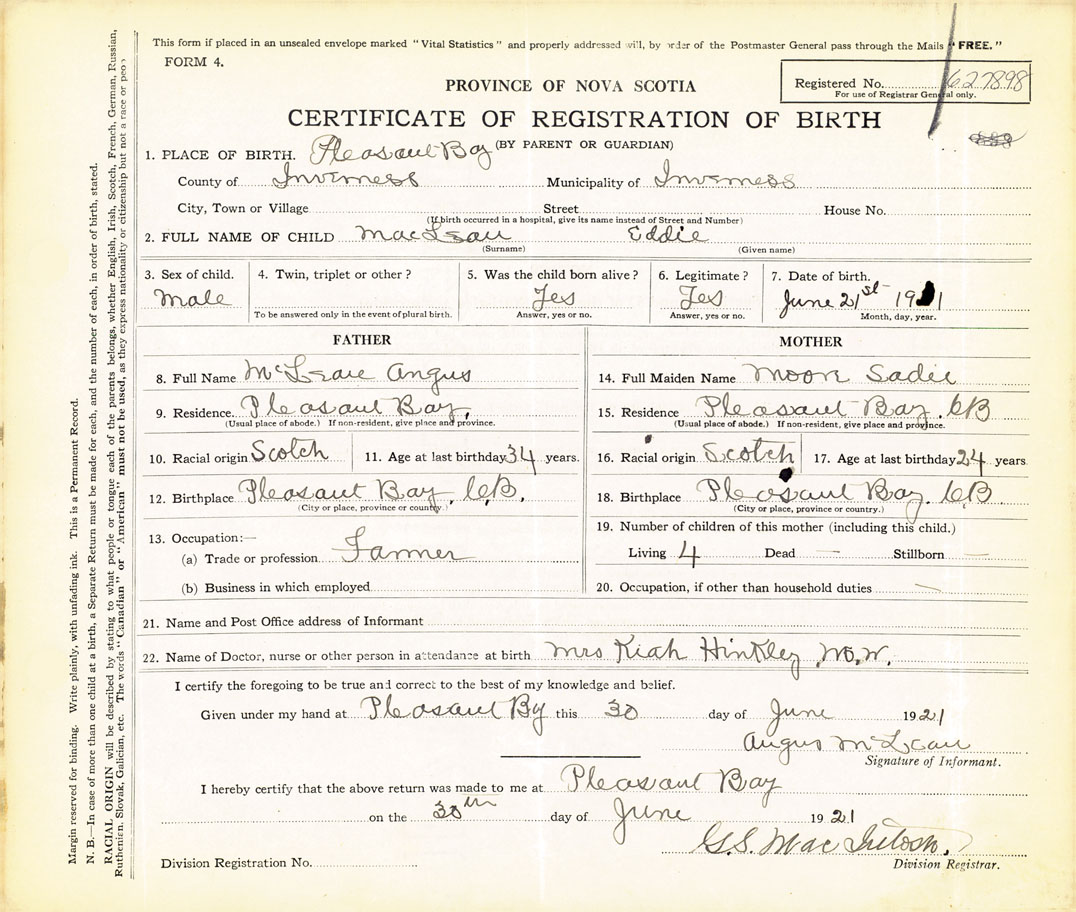 This form if placed in an unsealed envelope marked "Vital Statistics" and properly addressed will, by order of the Postmaster General pass through the Mails "FREE."
FORM 4.
Registered No. 627898
For use of Registrar General only.
PROVINCE OF NOVA SCOTIA
CERTIFICATE OF REGISTRATION OF BIRTH
(BY PARENT OR GUARDIAN)
1. PLACE OF BIRTH. Pleasant Bay
County of Inverness Municipality of Inverness
City, Town or Village Street House No.
(If birth occurred in a hospital, give its name instead of Street and Number)
2. FULL NAME OF CHILD MacLean Eddie
(Surname) (Given name)
3. Sex of child. 4. Twin, triplet or other? 5. Was the child born alive? 6. Legitimate? 7. Date of birth.
Male Yes Yes June 21st 1921
To be answered only in the event of plural birth. Answer, yes or no. Answer, yes or no. Month, day, year.
FATHER
8. Full Name McLean Angus
9. Residence. Pleasant Bay,
(Usual place of abode.) If non-resident, give place and province.
10. Racial origin Scotch 11. Age at last birthday 34 years.
12. Birthplace Pleasant Bay, C.B.
(City or place, province or country.)
13. Occupation:—
(a) Trade or profession Farmer
(b) Business in which employed
MOTHER
14. Full Maiden Name Moore Sadie
15. Residence Pleasant Bay. CB
(Usual place of abode.) If non-resident, give place and province.
16. Racial origin Scotch 17. Age at last birthday 24 years
18. Birthplace Pleasant Bay. CB
(City or place, province or country.)
19. Number of children of this mother (including this child.)
Living 4 Dead — Stillborn —
20. Occupation, if other than household duties —
21. Name and Post Office address of Informant
22. Name of Doctor, nurse or other person in attendance at birth Mrs Kiah Hinkley, M.W.
I certify the foregoing to be true and correct to the best of my knowledge and belief.
Given under my hand at Pleasant By this 30 day of June 1921
Angus McLean
Signature of Informant.
I hereby certify that the above return was made to me at Pleasant Bay
on the 30th day of June 1921
G.S. MacIntosh.
Division Registrar.
Division Registration No.
Margin reserved for binding. Write plainly, with unfading ink. This is a Permanent Record.
N. B.—In case of more than one child at a birth, a Separate Return must be made for each, and the number of each, in order of birth, stated.
RACIAL ORIGIN will be described by stating to what people or tongue each of the parents belongs, whether English, Irish, Scotch, French, German, Russian,
Ruthenian, Slovak, Galician, etc. The words "Canadian" or "American" must not be used, as they express nationality or citizenship but not a race or